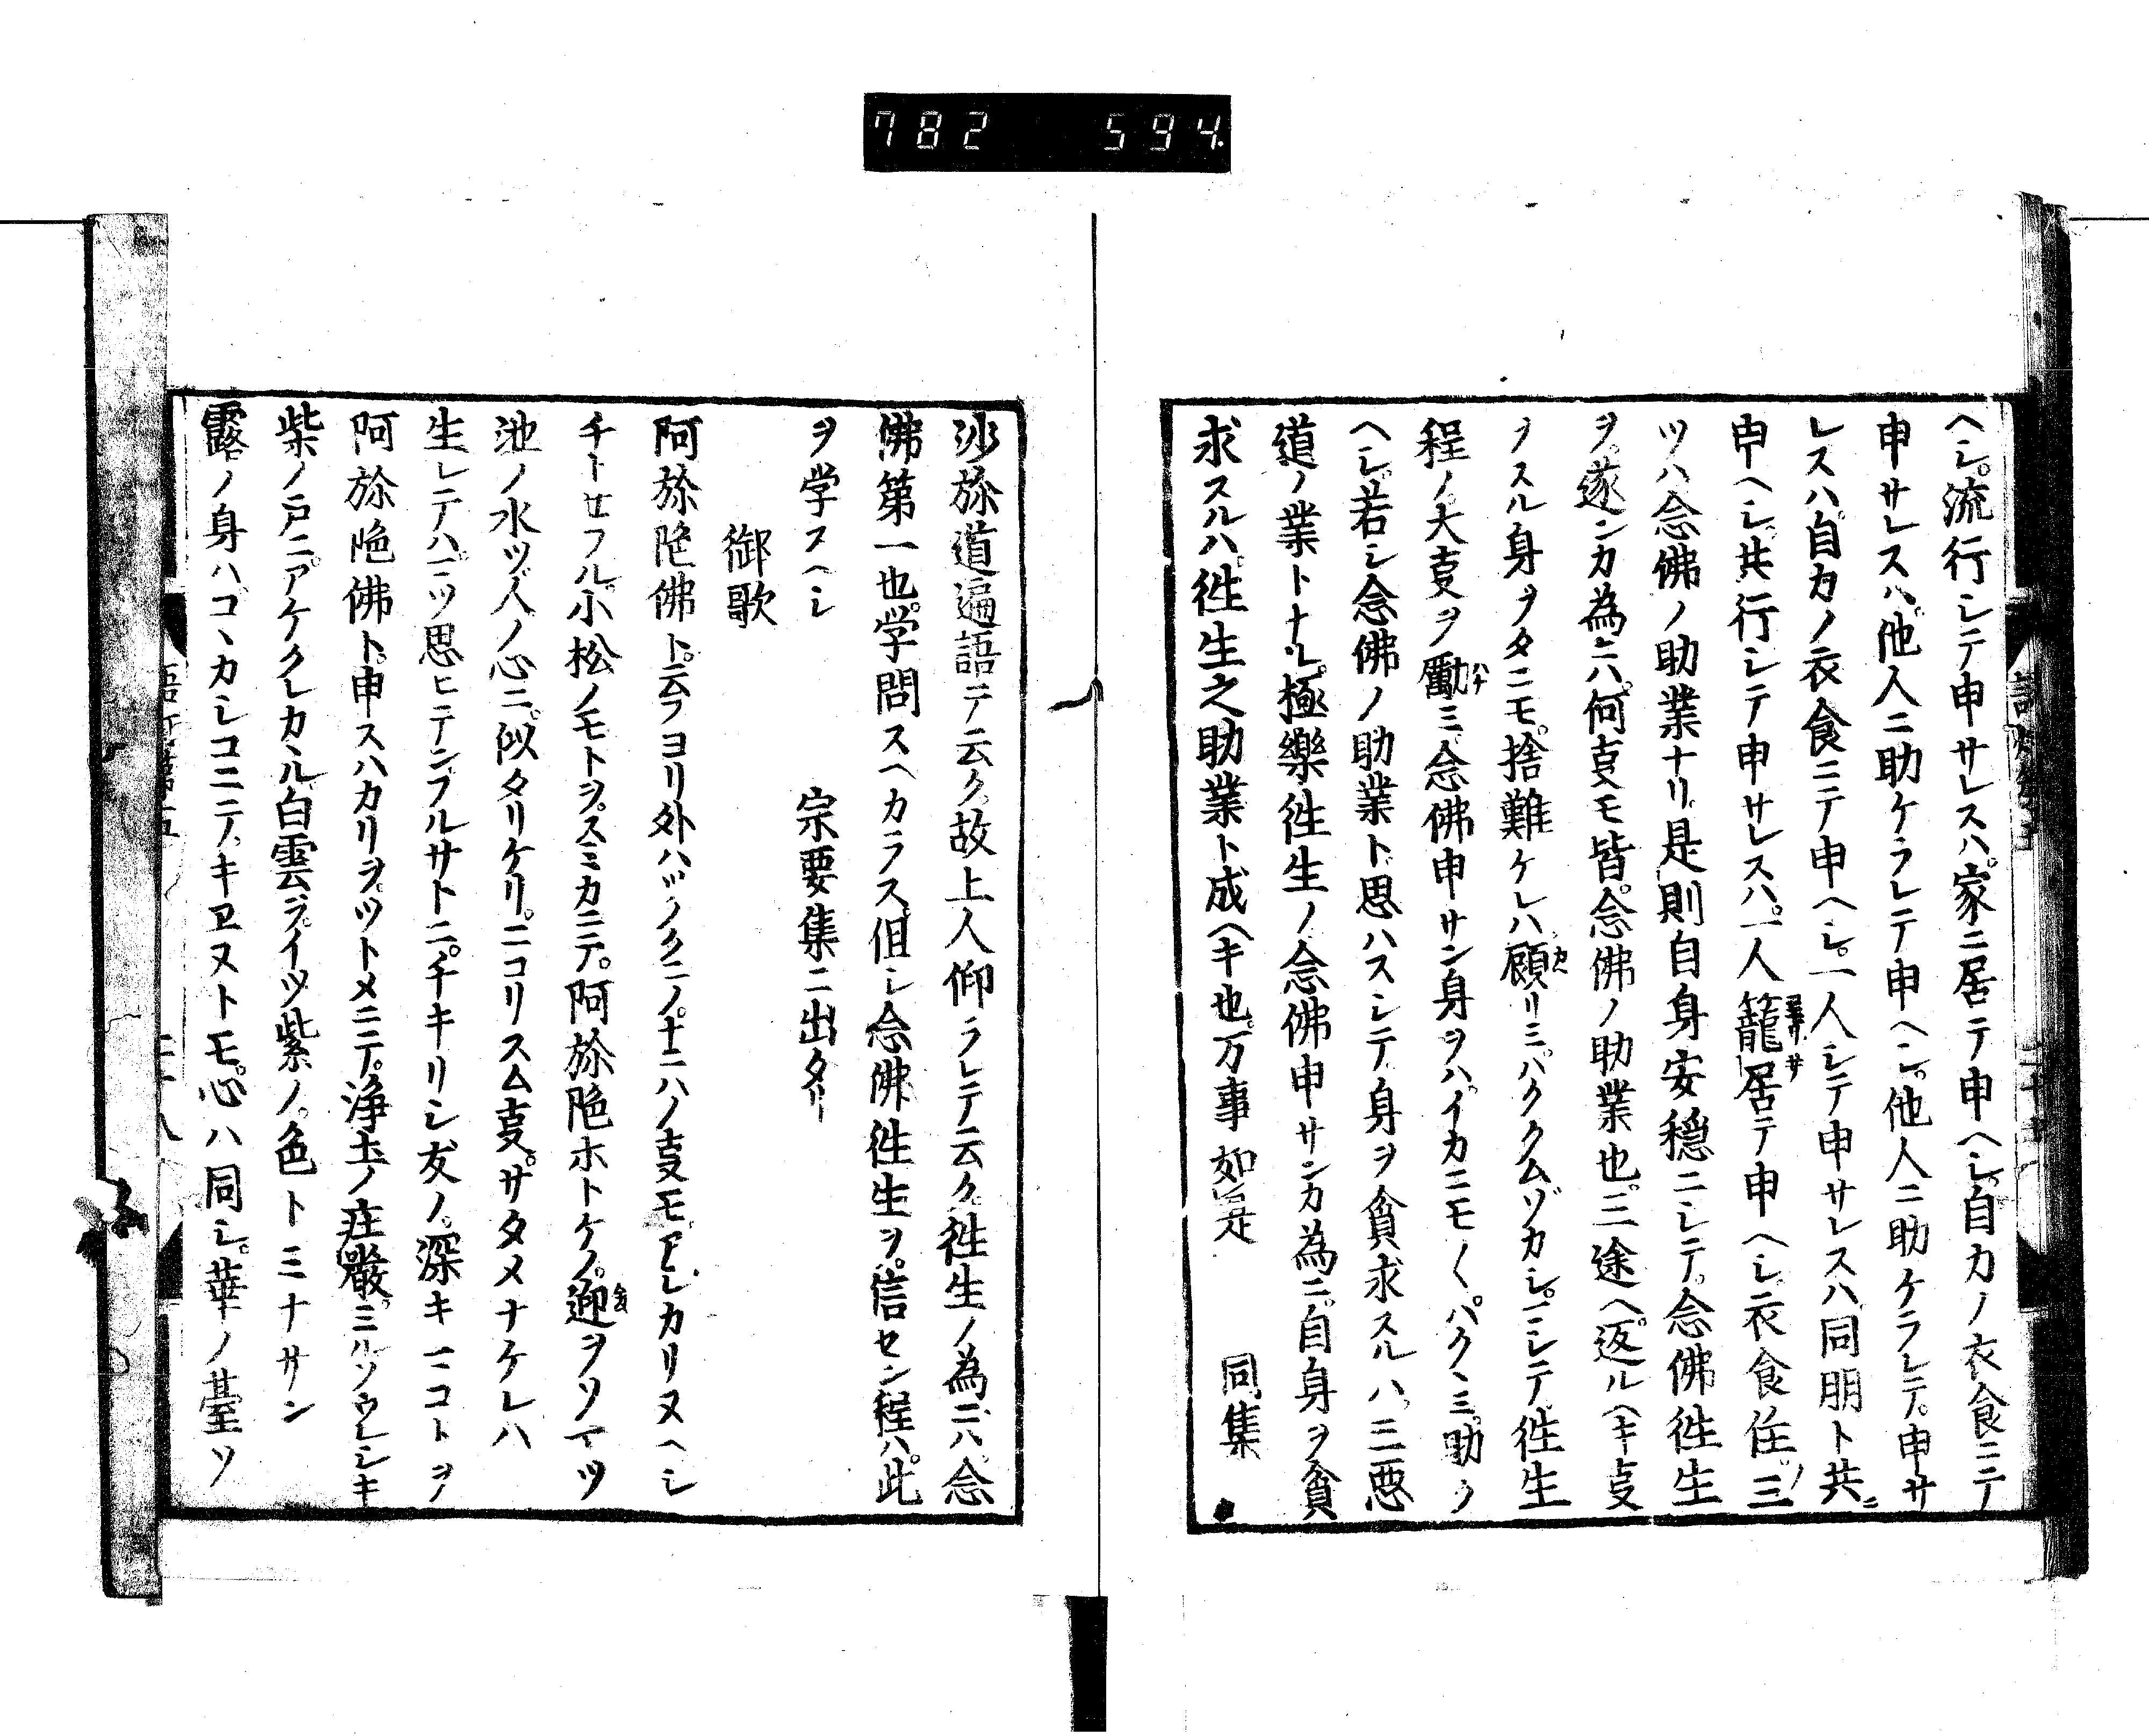 782 594
ヘシ。流行シテ申サレスハ。家ニ居テ申ヘシ。自カノ衣食ニテ
申サレスハ。他人ニ助ケラレテ申ヘシ。他人ニ助ケラレテ。申サ
レスハ。自カノ衣食ニテ申ヘシ。一人シテ申サレスハ。同朋ト共ニ
申ヘシ。共行シテ申サレスハ。一人籠居テ申ヘシ。衣食住ノ三
ツハ念佛ノ助業ナリ。是則自身安穏ニシテ。念佛徃生
ヲ。遂ンカ為ニハ。何支モ皆。念佛ノ助業也。三途ヘ。返ルヘキ支
ヲスル身ヲタニモ。捨難ケレハ。顧リミ。ハククムゾカシ。マシテ徃生
程ノ。大支ヲ勵ミ。念佛申サン身ヲハ。イカニモ〱。ハクヽミ。助ク
ヘシ。若シ念佛ノ助業ト。思ハスシテ。身ヲ貪求スルハ。三惡
道ノ業トナル。極樂徃生ノ念佛申サンカ為ニ。自身ヲ貪
求スルハ。徃生之助業ト成ヘキ也。万事如是 同集
沙旀道遍語テ云ク。故上人仰ラレテ云ク。徃生ノ為ニハ。念
佛第一也。学問スヘカラス。但シ念佛徃生ヲ。信セン程ハ。此
ヲ学スヘシ 宗要集ニ出タリ
御歌
阿旀陁佛ト。云フヨリ外ハ。ツノクニノ。ナニハノ支モ。アシカリヌヘシ
チトセフル。小松ノモトヲ。スミカニテ。阿旀陁ホトケノ。迎ヲソマツ
池ノ水ツ。人ノ心ニ。似タリケリ。ニコリスム支。サタメナケレハ
生レテハ。マツ思ヒテン。フルサトニ。チキリシ友ノ。深キマコトヲ
阿旀陁佛ト。申スハカリヲ。ツトメニテ。浄土ノ莊嚴。ミルソウレシキ
柴ノ戸ニ。アケクレカヽル。白雲ヲ。イツ紫ノ。色トミナサン
露ノ身ハ。コヽカシコニテ。キヱヌトモ。心ハ同シ。華ノ臺ソ